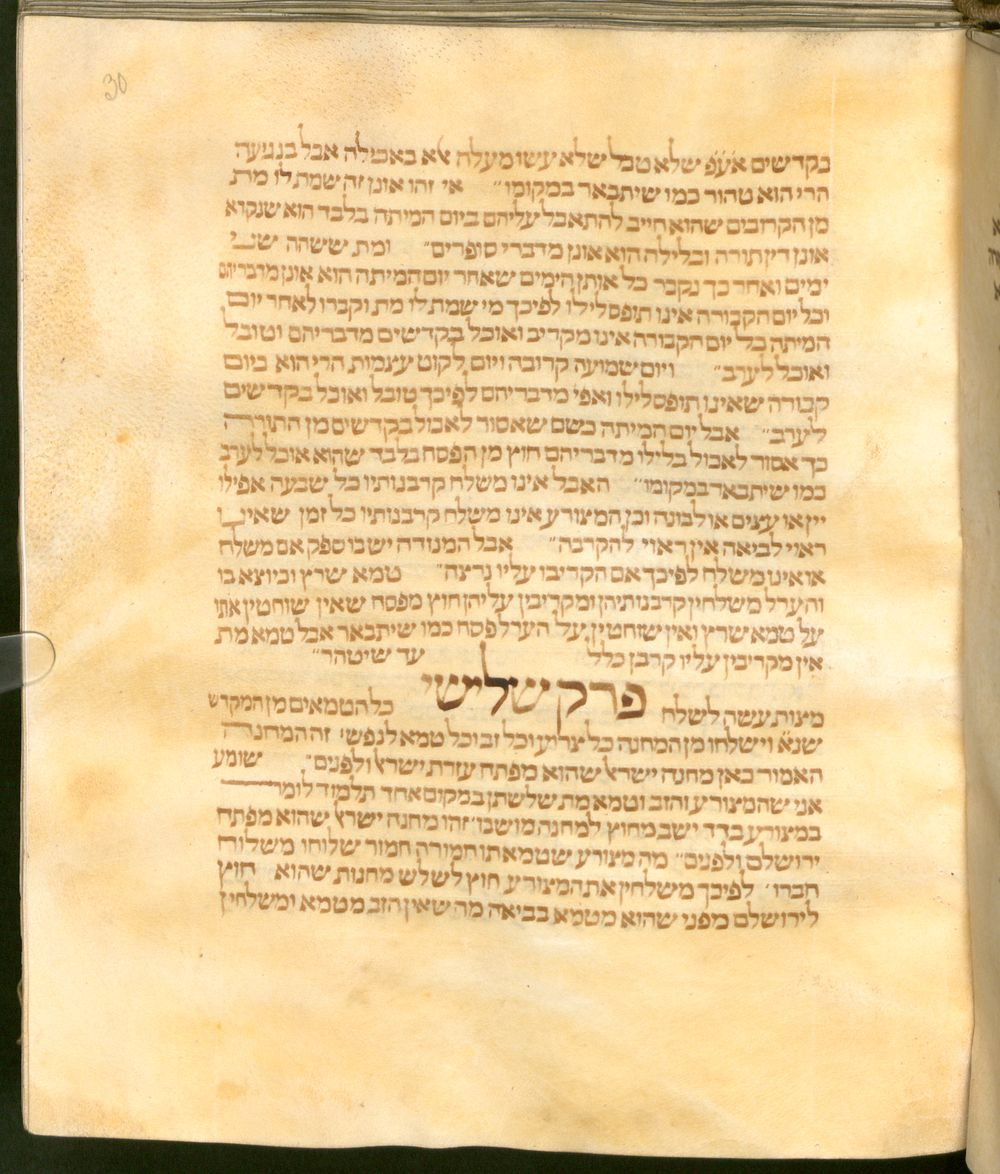 30
בקדשים אע״פ שלא טבל שלא עשו מעלה אלא באכילה אבל בנגיעה
הרי הוא טהור כמו שיתבאר במקומו״ אי זהו אונן זה שמת לו מת
מן הקרובים שהוא חייב להתאבל עליהם ביום המיתה בלבד הוא שנקרא
אונן דין תורה ובלילה הוא אונן מדברי סופרים״ ומת ששהה שני
ימים ואחר כך נקבר כל אותן הימים שאחר יום המיתה הוא אונן מדבריהם
וכל יום הקבורה אינו תופס לילו לפיכך מי שמת לו מת וקברו לאחר יום
המיתה כל יום הקבורה אינו מקריב ואוכל בקדשים מדבריהם וטובל
ואוכל לערב״ ויום שמועה קרובה ויום לקוט עצמות הרי הוא כיום
קבורה שאינו תופס לילו ואפי׳ מדבריהם לפיכך טובל ואוכל בקדשים
לערב״ אבל יום המיתה כשם שאסור לאכול בקדשים מן התורה
כך אסור לאכול בלילו מדבריהם חוץ מן הפסח בלבד שהוא אוכל לערב
כמו שיתבאר במקומו״ האבל אינו משלח קרבנותיו כל שבעה אפילו
יין או עצים או לבונה וכן המצורע אינו משלח קרבנותיו כל זמן שאינו
ראוי לביאה אין ראוי להקרבה״ אבל המנודה יש בו ספק אם משלח
או אינו משלח לפיכך אם הקריבו עליו נרצה״ טמא שרץ וכיוצא בו
והערל משלחין קרבנותיהן ומקריבין עליהן חוץ מפסח שאין שוחטין אותו
על טמא שרץ ואין שוחטין על הערל פסח כמו שיתבאר אבל טמא מת
אין מקריבין עליו קרבן כלל עד שיטהר״
פרק שלישי
מצות עשה לשלח כל הטמאים מן המקדש
שנא׳ וישלחו מן המחנה כל צרוע וכל זב וכל טמא לנפש׳ זה המחנה
האמור כאן מחנה ישראל שהוא מפתח עזרת ישראל ולפנים״ שומע
אני שהמצורע והזב וטמא מת שלשתן במקום אחד תלמוד לומר
במצורע בדד ישב מחוץ למחנה מושבו׳ זהו מחנה ישראל שהוא מפתח
ירושלם ולפנים״ מה מצורע שטמאתו חמורה חמור שלוחו משלוח
חברו׳ לפיכך משלחין את המצורע חוץ לשלש מחנות שהוא חוץ
לירושלם מפני שהוא מטמא בביאה מה שאין הזב מטמא ומשלחין